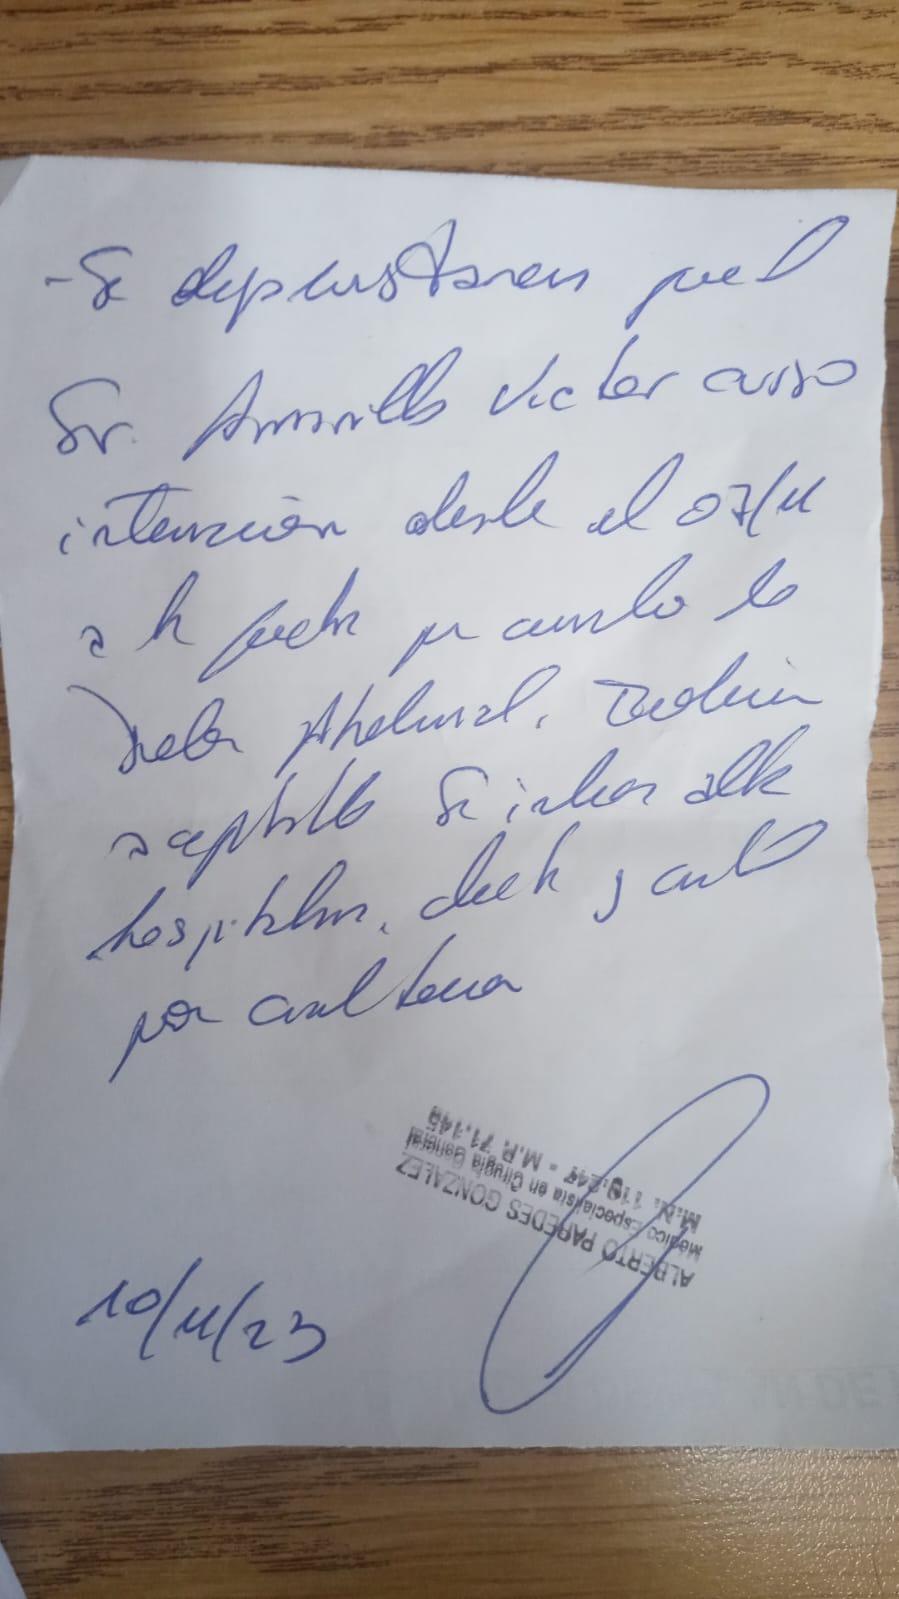 - Se deja constancia que el
Sr. Amarilla Victor curso
internación desde el 07/11
a la fecha por cuadro de
dolor abdominal.
aceptable Se indica alta
hospitalaria, dieta y control
por
10/11/23
ALBERTO PAREDES GONZALEZ
Médico Especialista en Cirugía General
M.N. 119.247 - M.P. 71.145